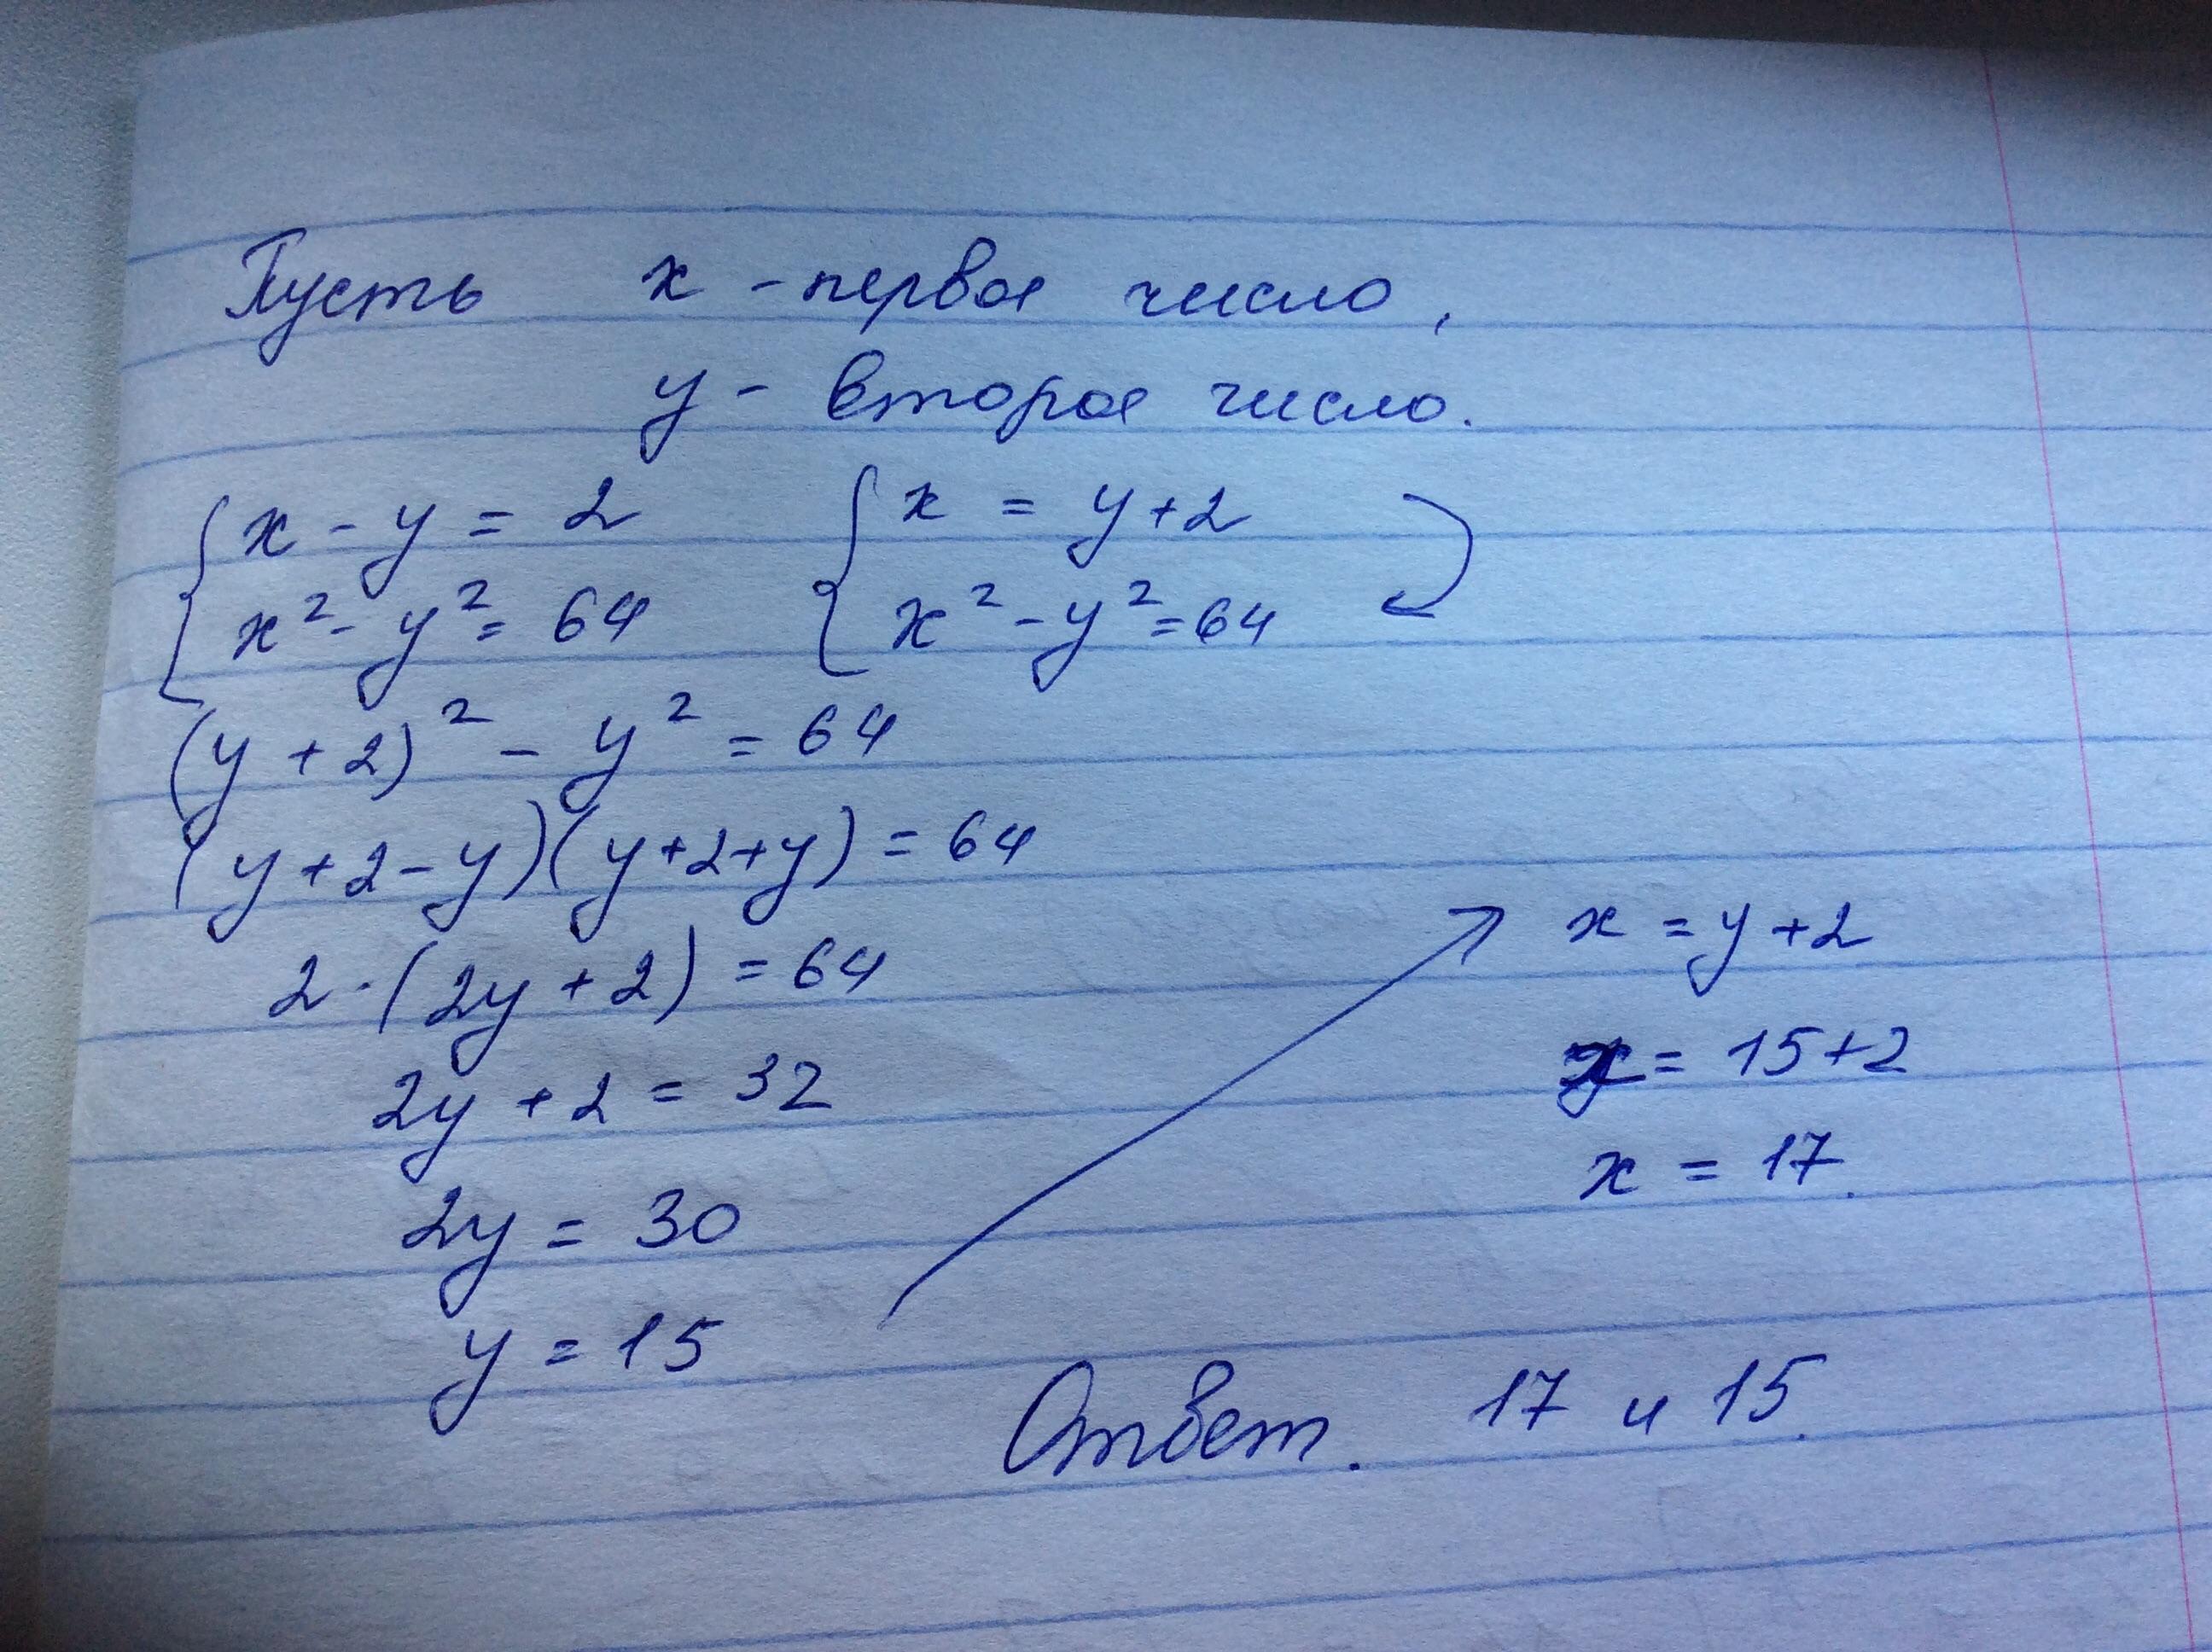 Пусть x - первое число,
y - второе число.
{ x - y = 2
x² - y² = 64
{ x = y + 2
x² - y² = 64
(y + 2)² - y² = 64
(y + 2 - y)(y + 2 + y) = 64
2 · (2y + 2) = 64
2y + 2 = 32
2y = 30
y = 15
x = y + 2
x = 15 + 2
x = 17.
Ответ. 17 и 15.